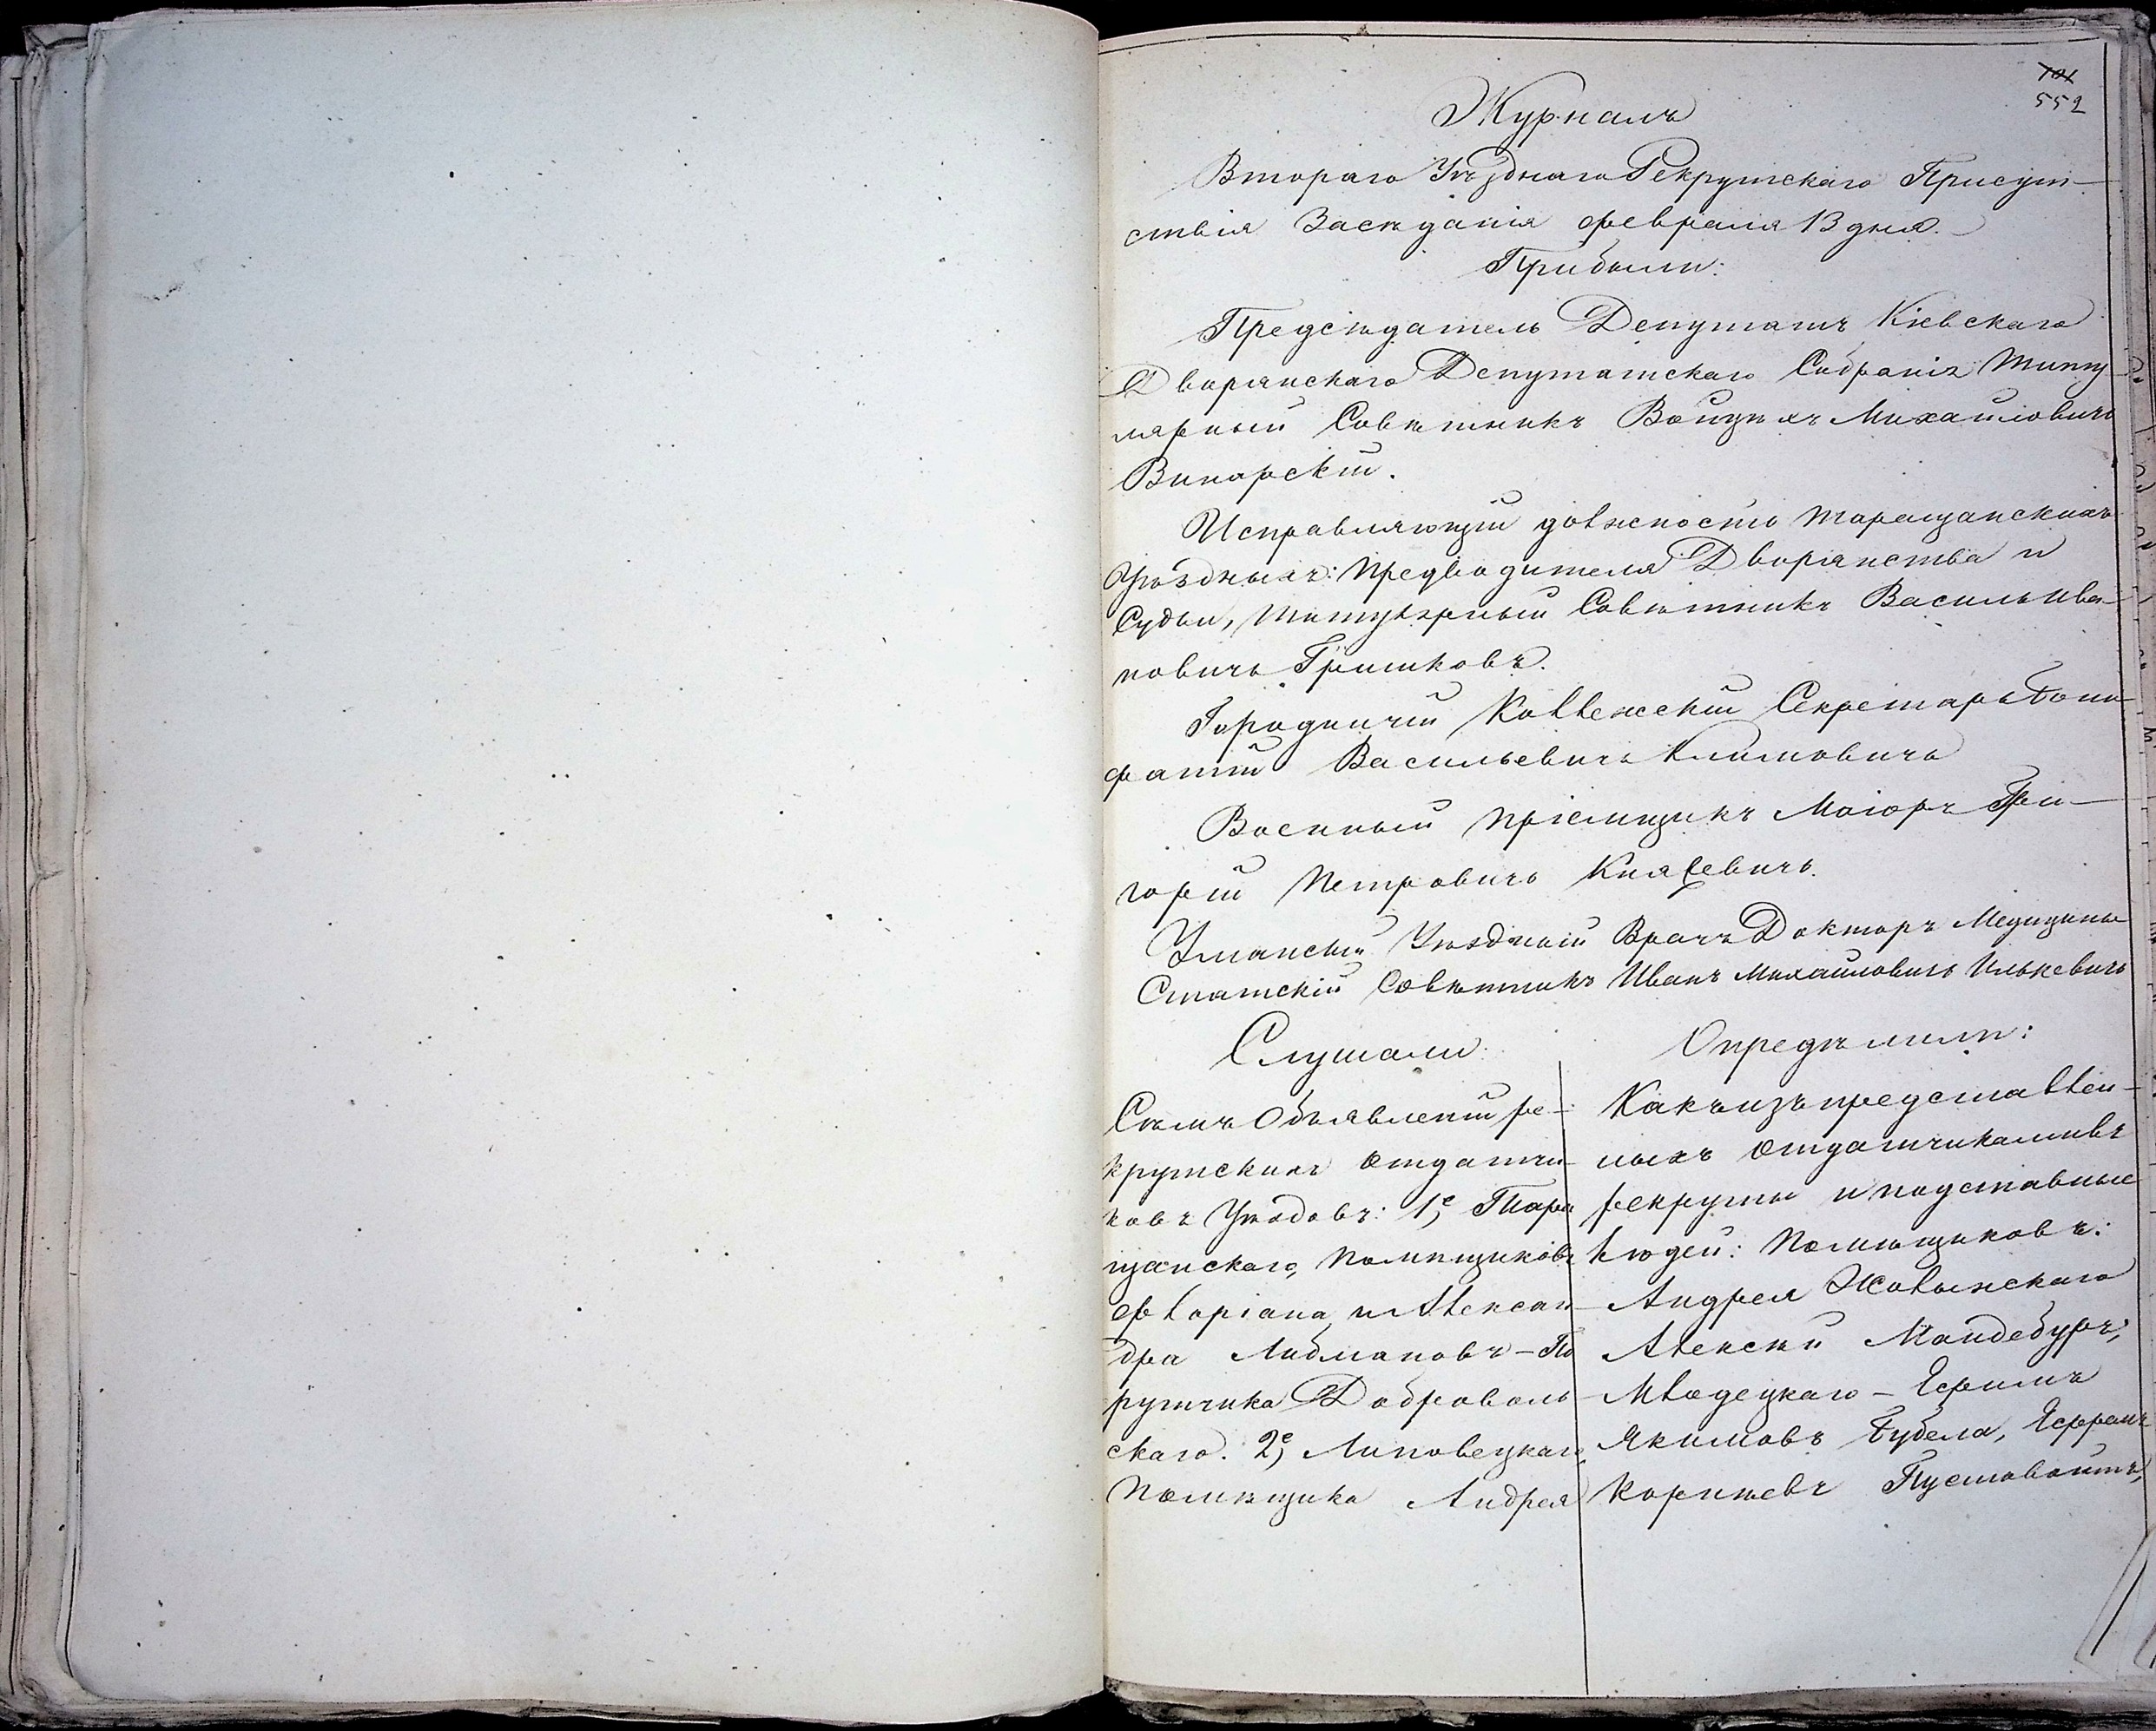 101
552
Журналъ
Втораго Уѣзднаго Рекрутскаго Присут-
ствія Засѣданія февраля 13 дня.
Прибыли:
Предсѣдатель Депутатъ Кіевскаго
Дворянскаго Депутатскаго Собранія Титу
лярный Совѣтникъ Войцѣхъ Михайловичъ
Винарскій.
Исправляющій должность Таращанскихъ
Уѣздныхъ: Предводителя Дворянства и
Судьи, Титулярный Совѣтникъ Василь Ива-
новичъ Гришковъ.
Городничій Коллежскій Секретарь Бони-
фатій Васильевичъ Климовичъ
Военный пріемщикъ Маіоръ Гри-
горій Петровичъ Княжевичъ.
Уманскій Уѣздный Врачъ Докторъ Медицины
Статскій Совѣтникъ Иванъ Михайловичъ Илькевичъ
Слушали:
Семъ Объявленій ре-
крутскихъ отдатчи-
ковъ Уѣздовъ: 1е, Тара
щанскаго, помѣщиковъ
Флоріана и Алексан-
дра Либмановъ - По
ручика Доброволь-
скаго. 2е, Липовецкаго,
помѣщика Андрея
Опредѣлили:
Какъ изъ представлен-
ныхъ отдатчиками въ
рекруты и подставные
людей: помѣщиковъ:
Андрея Жолынскаго
Алексѣй Мандебуръ;
Млодецкаго - Ефимъ
Якимовъ Бубела, Ефремъ
Корнѣевъ Пустовойтъ,